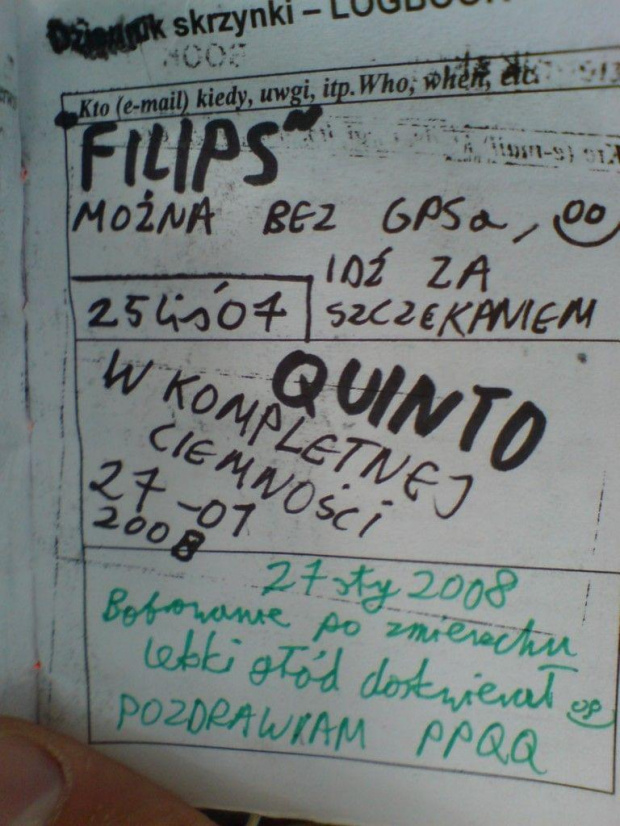 Dziennik skrzynki – LOGBOOK
Kto (e-mail) kiedy, uwgi, itp. Who, when, etc.
FILIPS
MOŻNA BEZ GPSa,
IDŹ ZA
25 liś 07 SZCZEKANIEM
QUINTO
W KOMPLETNEJ
CIEMNOŚCI
27-01
2008
27 sty 2008
Bobrowanie po zmierzchu
lekki głód doskwierał
POZDRAWIAM PPQQ